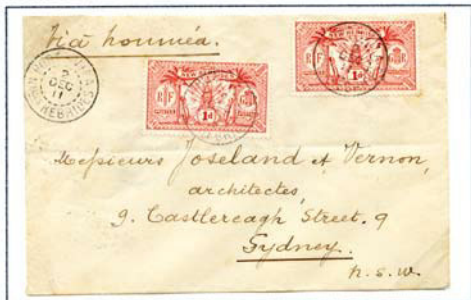 Via Nouméa.
2
DEC
11
NEW HEBRIDES
R F
1d
R F
1d
Messieurs Joseland & Vernon,
architectes,
9. Castlereagh Street. 9
Sydney.
N.S.W.